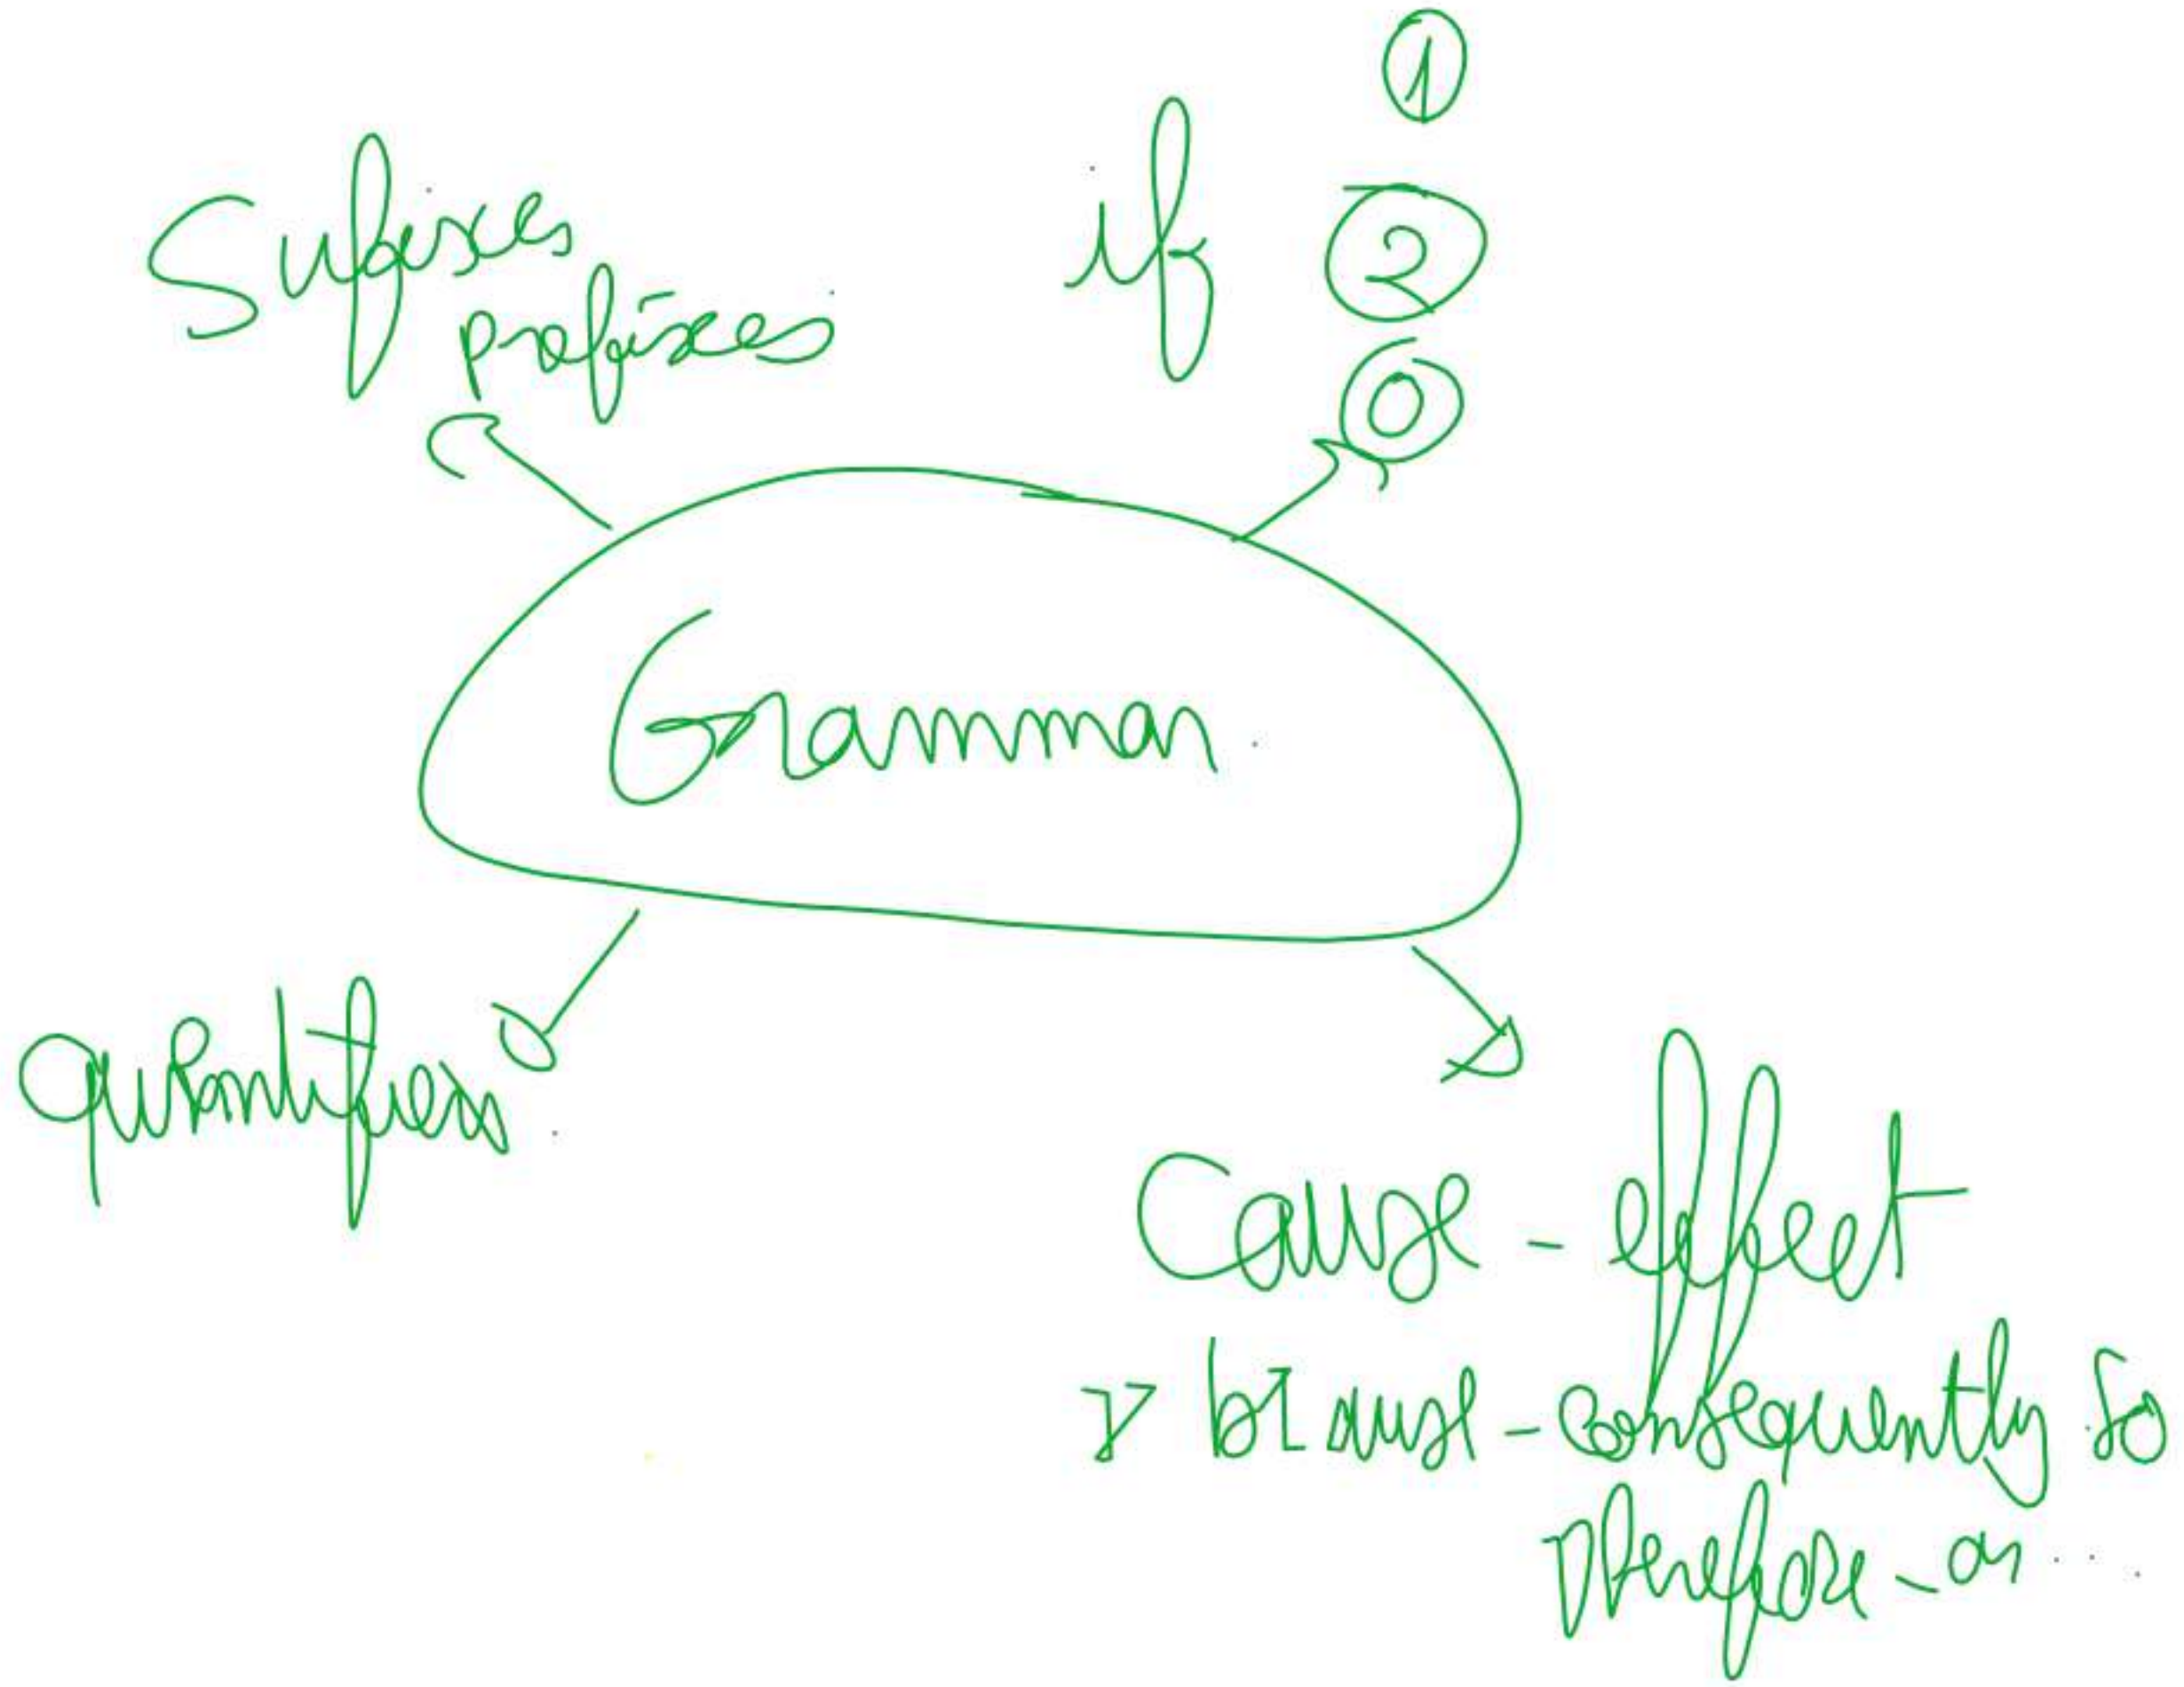 1
if
2
0
Sufixes
prefixes
Grammar
quantifiers
Cause - effect
because - consequently so
Therefore - as ...